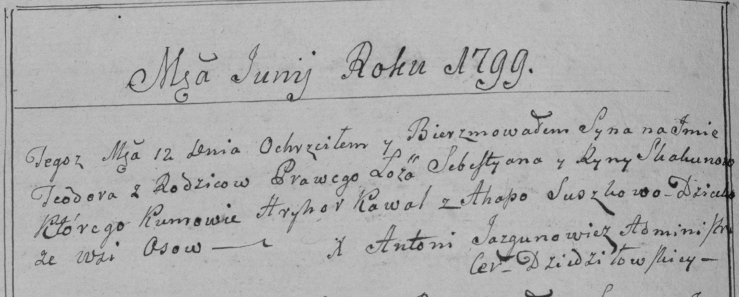 Mca Junij Roku 1799.
Tegoż Mca 12 Dnia Ochrzciłem y Bierzmowałem Syna na Imie
Teodora z Rodzicow Prawego Łoża Sebestyana y Ryny Skakunow
Którego Kumowie Aryhor Kawal z Ahapo Suszkowo Dziecko
ze wsi Osow — X Antoni Jazgunowicz Administr:
Cer: Dziedziłowskiey —